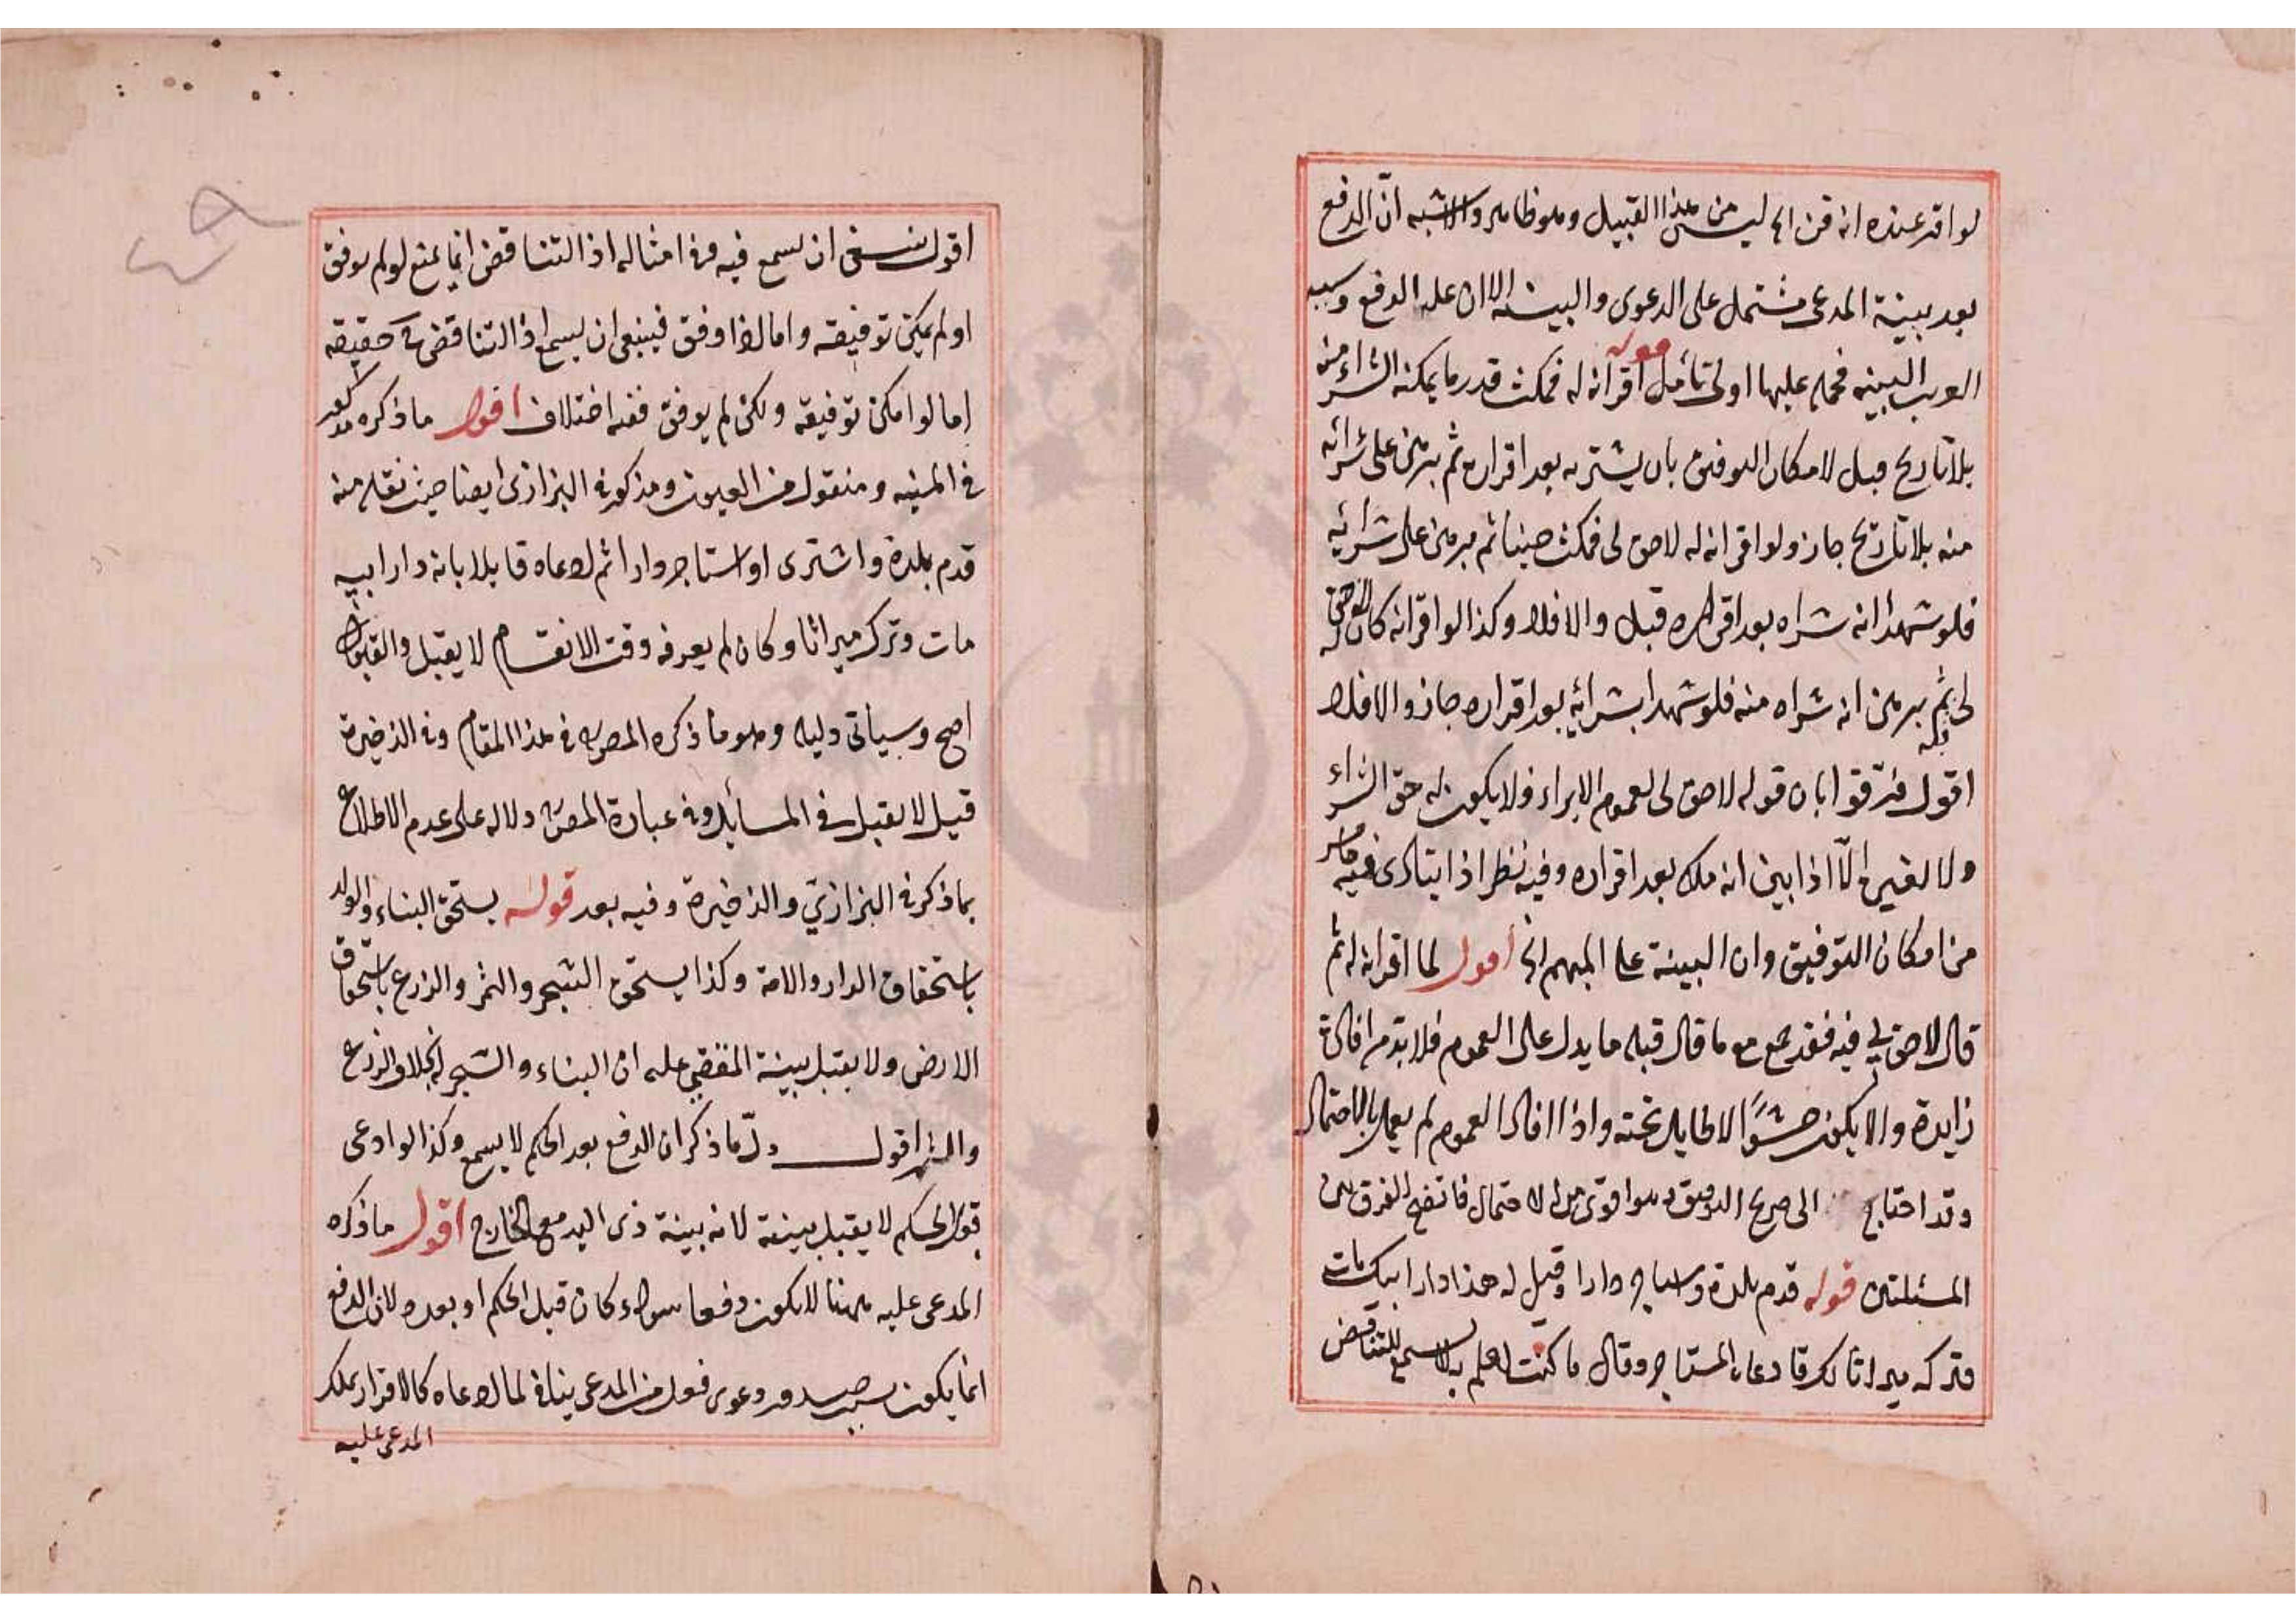 لو اقر عنده انه قن الخ ليس من هذا القبيل وهو ظاهر والاشبه انّ الدفع
بعد بينة المدعى مشتمل على الدعوى والبينة الا ان عليه الدفع وسببه
البينة فحمله عليها اولى تأمل قوله اقر انه له فمكث قدر ما يمكنه الشراء منه
بلا تاريخ قبل لامكان التوفيق بان يشتريه بعد اقراره ثم برهن على شرائه
منه بلا تاريخ جاز ولو اقر انه له لا حق لى فمكث حينا ثم برهن على شرائه
فلو شهدا انه شراه بعد اقراره قبل والا فلا وكذا لو اقر انه كان له لا حق
لى فيه ثم برهن انه شراه منه فلو شهدا بشرائه بعد اقراره جاز والا فلا
اقول فرّقوا بان قوله لا حق لى لعموم الابراء فلا يكون له حق الشراء
ولا لغيره الّا اذا بين انه ملكه بعد اقراره وفيه نظر اذا يتادى فيه ما مر
من امكان التوفيق وان البينة على المبهم الخ اقول لما اقر انه له ثم
قال لا حق لي فيه فقد جمع مع ما قال قبله ما يدل على العموم فلا بد من افادة
زايدة والا يكون حشوًا لا طايل تحته واذا افاد العموم لم يعمل بالاحتمال
وقد احتاج الى صريح التوفيق وهو اقوى من الاحتمال فاتضح الفرق بين
المسئلتين قوله قدم بلدة واستاجر دارا وقيل له هذا دار ابيك مات
وتركه ميراثا لك فادعاه المستاجر وقال ما كنت اعلم به لا يسمع للتناقض
اقول ينبغى ان يسمع فيه وفى امثاله اذ التناقض انما يمنع لو لم يوفق
او لم يمكن توفيقه واما اذا وفق فينبغى ان يسمع اذ لا تناقض ح حقيقة
اما لو امكن توفيقه ولكن لم يوفق ففيه اختلاف اقول ما ذكره مذكور
فى المنية ومنقول من العيون ومذكور فى البزازى ايضا حيث نقله منه
قدم بلدة واشترى او استاجر دارا ثم ادعاه قايلا بانه دار ابيه
مات وترك ميراثا وكان لم يعرفه وقت الانقسام لا يقبل والقبول
اصح وسيأتى دليله وهو ما ذكره المص فى هذا المقام وفى الذخيرة
قيل لا يقبل فى المسايل وفى عبارة المص دلالة على عدم الاطلاع
بما ذكر فى البزازيّ والذخيرة وفيه بعد قوله يستحق البناء والولد
باستحقاق الدار والامة وكذا يستحق الشجر والثمر والزرع باستحقاق
الارض ولا يقبل بينة المقضي عليه ان البناء والشجر له بخلاف الزرع
والثمر اقول دلّ ما ذكر ان الدفع بعد الحكم لا يسمع وكذا لو ادعى
قبل الحكم لا يقبل بينته لانه بينة ذى اليد مع الخارج اقول ما ذكره
المدعى عليه ههنا لا يكون دفعا سواء كان قبل الحكم او بعده لان الدفع
انما يكون بسبب صدور دعوى فعل من المدعى ينافى لما ادعاه كالاقرار بملك
المدعى عليه